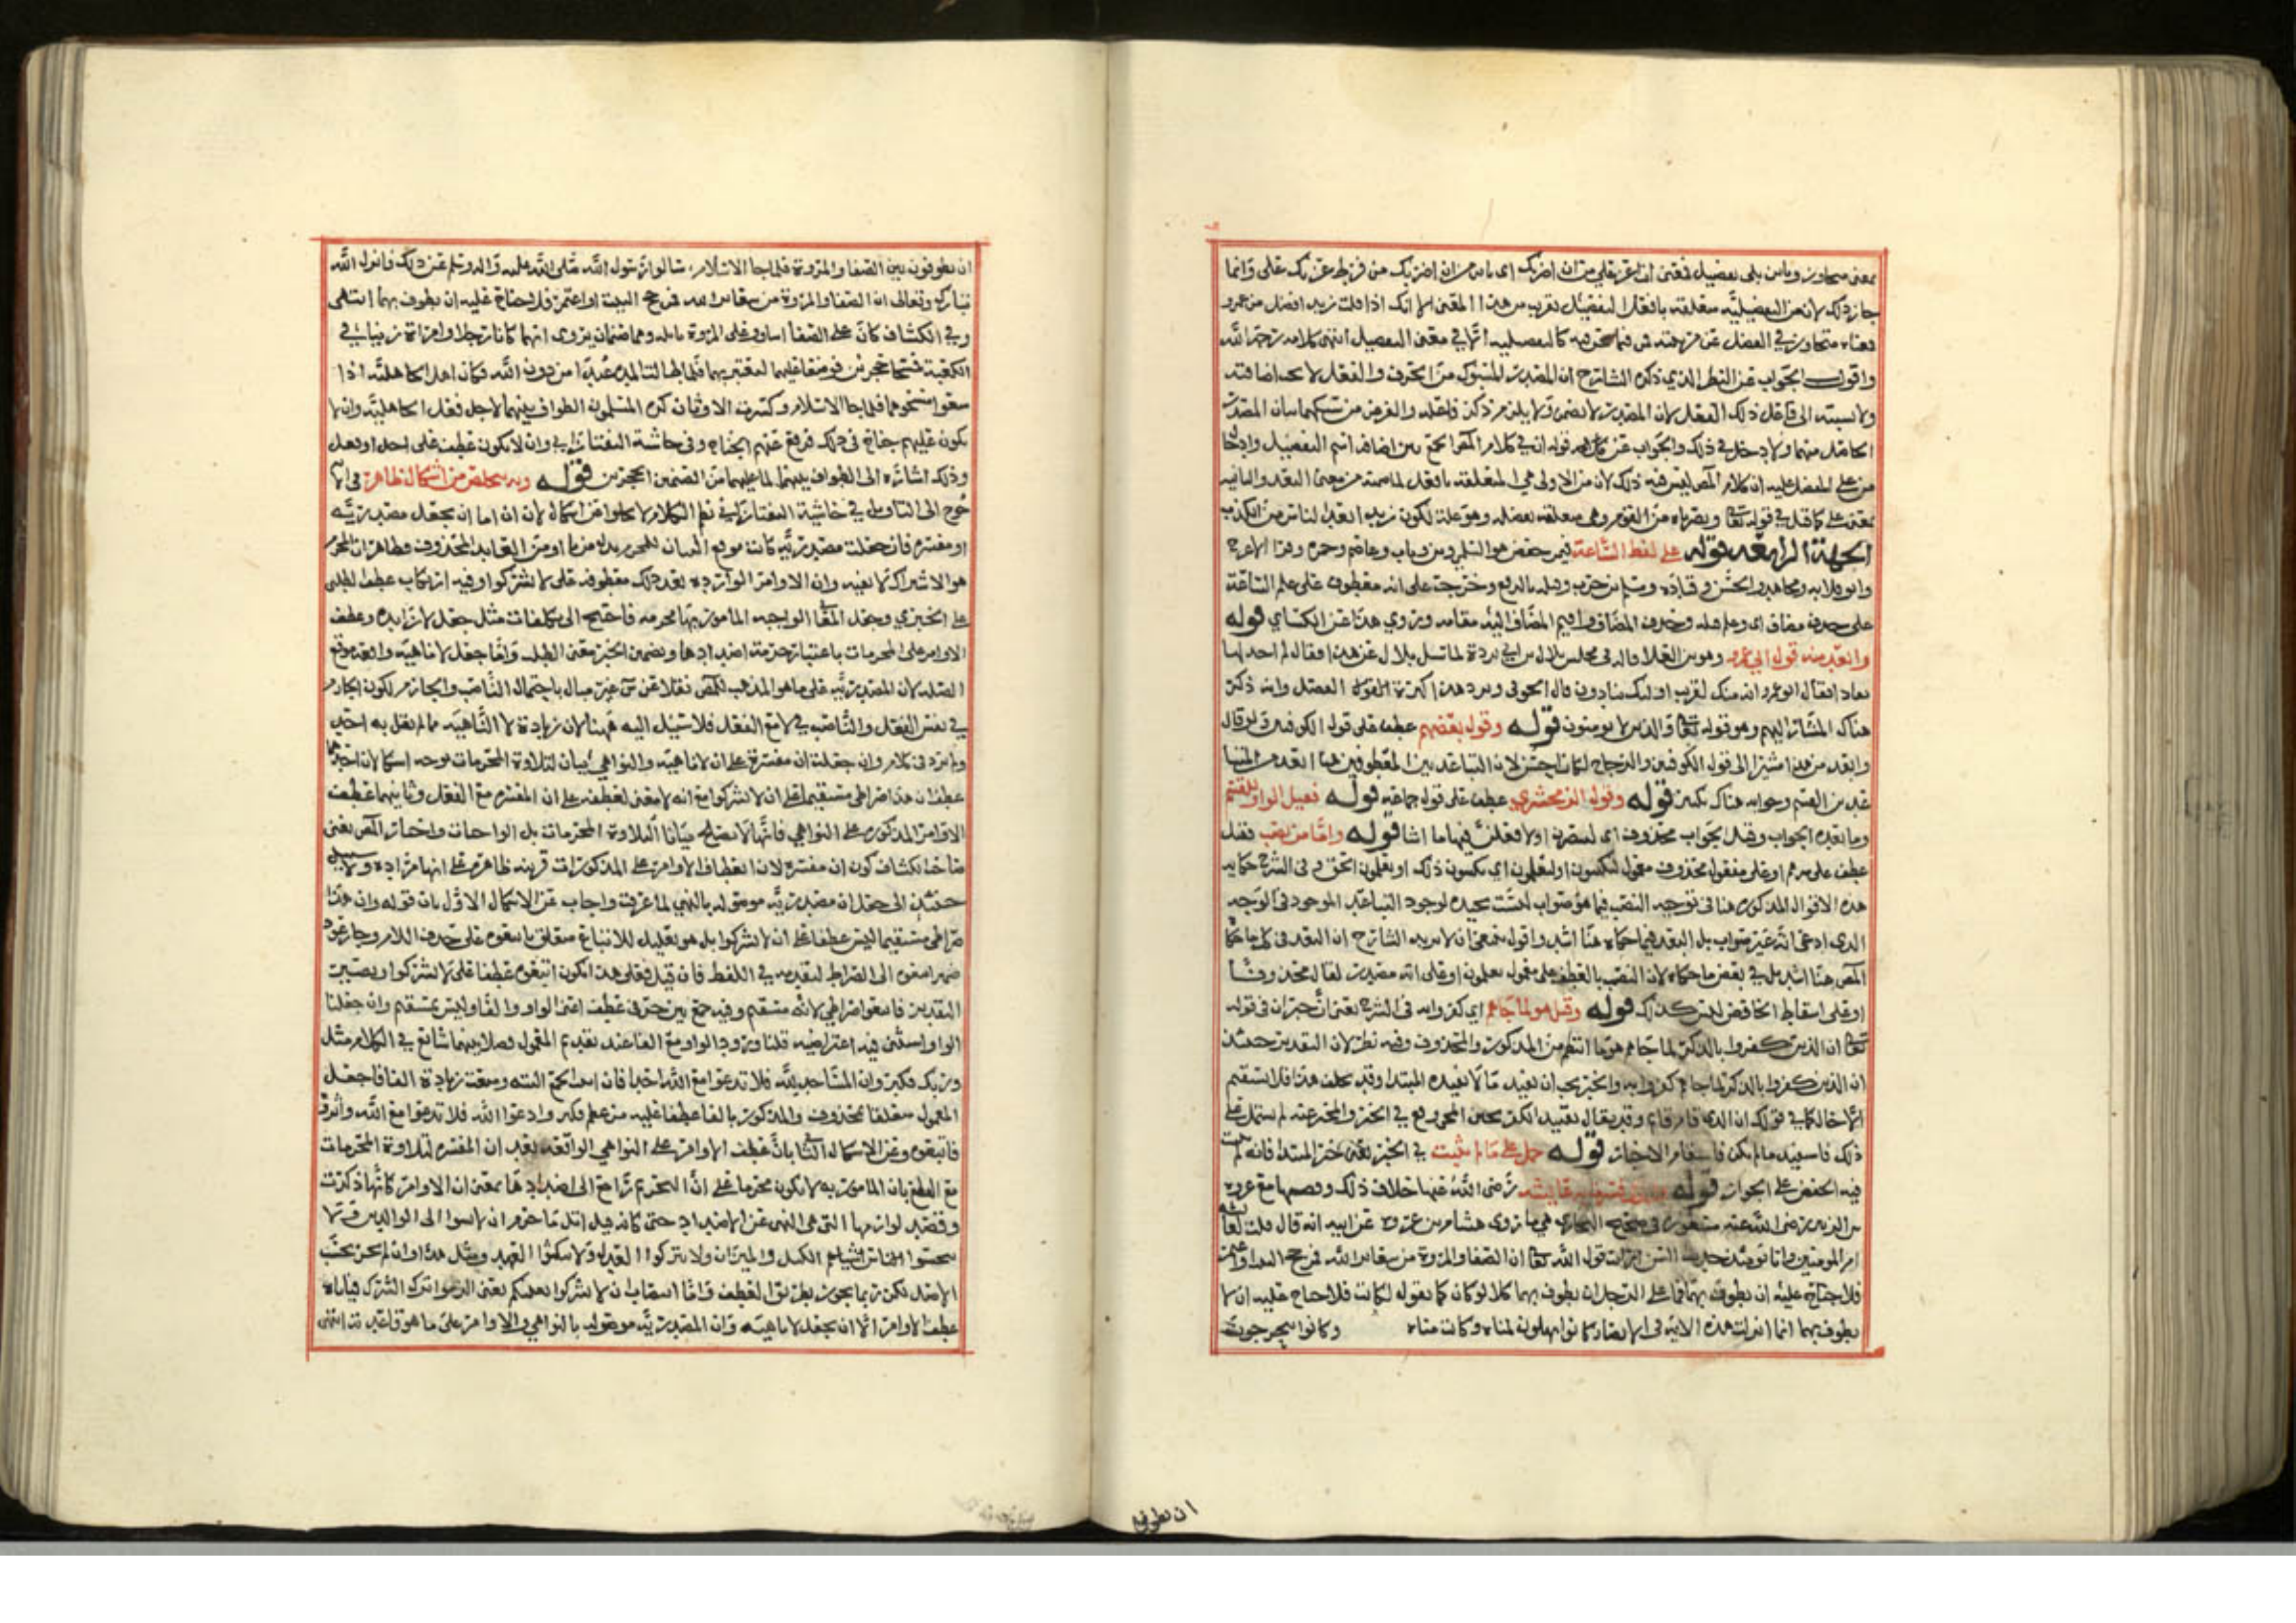 بمعنى متجاوز وباين بلى بفضيل فمعنى انت اعز على من ان اضربك اى باين من ان اضربك من فرط عزتك على وانما
جاز ذلك لان من التفضيلية متعلقة بافعل التفضيل بقرب من هذا المعنى الا انك اذا قلت زيد افضل من عمرو
فمعناه متجاوز فى الفضل عن مرتبته فمن فيما نحن فيه كالتفضيلية الا فى معنى التفضيل انتهى كلامه رحمه الله
واقول الجواب عن النظر الذي ذكره الشارح ان المصدر المسبوك من الحرف والفعل لا
ولا نسبته الى فاعل ذلك الفعل لان المصدر لا يضمر ولا يلزم ذكر فاعله والغرض من سبكهما بيان المصدر
الحاصل منهما ولا دخل فى ذلك والجواب عن قوله ان فى كلام المص جمع بين اضافة اسم التفضيل وادخال
من على المفضل عليه ان كلام المص ليس فيه ذلك لان من الاولى هى المتعلقة بافعل لما من معنى البعد والثانية
بمعنى على كما قيل فى قوله تعالى ونصرناه من القوم وهى متعلقة وهو علة لكون زيد ابعد الناس من الكذب
الجملة الرابعة قوله على لفظ الساعة فيمن خفض هو السلمي وابن وثاب وعاصم وحمزة وقرا الاعرج
وابو قلابة ومجاهد والحسن وقتادة ومسلم بن جندب وقيله بالرفع وخرجت على انه معطوف على علم الساعة
على حذف مضاف اى وعلم قيله وحذف المضاف واقيم المضاف اليه مقامه وروي هذا عن الكسائي قوله
وابعد منه قول ابي عمرو وهو بن العلا قاله فى مجلس بلال بن ابي بردة لما سئل بلال عن هذا فقال لم اجد لها
نفاذا فقال ابو عمرو انه منك لقريب اولئك ينادون قال الحوفى ويرد هذا كثرة الفصل وانه ذكر
هناك المشار اليهم وهو قوله تعالى والذين لا يومنون قوله وقول بعضهم عطف على قول الكوفيين ولو قال
وابعد من هذا مشيرا الى قول الكوفيين والزجاج لكان احسن لان التباعد بين المعطوفين هنا ابعد من
بين القسم وجوابه هناك بكثير قوله وقول الزمخشري عطف على قول جماعة قوله فقيل الواو للقسم
وما بعده الجواب وقيل الجواب محذوف اى لينصرن او لافعلن بهم ما اشا قوله واما من نصب فقيل
عطف على سرهم او على مفعول محذوف معمول ليكتبون او ليعلمون اى يكتبون ذلك او يعلمون الحق وفى الشرح حكاية
هذه الاقوال المذكورة هنا فى توجيه النصب فيما هو صواب ليست بجيدة لوجود التباعد الموجود فى الوجه
الذى ادعى انه غير صواب بل البعد فيما حكاه هنا اشد واقول ان لا يريد الشارح ان البعد فى كل ما حكاه
المص هنا اشد بل فى بعض ما حكاه لان النصب بالعطف على مفعول يعلمون او على انه مصدر لقال محذوفا
او على اسقاط الخافض ليس كذلك قوله وقيل هو لما جاهم اى كفروا به فى الشرح يعنى ان خبر ان فى قوله
تعالى ان الذين كفروا بالذكر لما جاهم هو ما انتظم من المذكور والمحذوف وفيه نظر لان التقدير حينئذ
ان الذين كفروا بالذكر لما جاهم كفروا به والخبر يجب ان يفيد ما لا يفيده المبتدا وقد تخلف هذا فلا يستقيم
كما فى قولك ان الذى قام قام وقد يقال بتقييد الكفر المجموع فى الخبر والمخبر عنه لم يشتمل على
ذلك فاستفيد ما لم يكن فاستقام الاخبار قوله حمل على ما لم يثبت فى الخبر يعنى خبر المبتدا فانه لم يثبت
فيه الخفض على الجوار قوله عائشة رضى الله عنها خلاف ذلك وقصتها مع عروة
بن الزبير رضى الله عنه مشهورة فى صحيح البخارى هى ما روى هشام بن عروة عن ابيه انه قال قلت لعائشة
ام المومنين وانا يومئذ حديث السن ارايت قول الله تعالى ان الصفا والمروة من شعائر الله فمن حج البيت او اعتمر
فلا جناح عليه ان يطوف بهما فما على الرجل ان يطوف بهما كلا لو كان كما تقول لكانت فلا جناح عليه ان لا
يطوف بهما انما انزلت هذه الاية فى الانصار كانوا يهلون لمناة وكانت مناة وكانوا يتحرجون
ان يطوفو
ان يطوفون بين الصفا والمروة فلما جا الاسلام سالوا رسول الله صلى الله عليه واله وسلم عن ذلك فانزل الله
تبارك وتعالى ان الصفا والمروة من شعائر الله فمن حج البيت او اعتمر فلا جناح عليه ان يطوف بهما انتهى
وفى الكشاف كان على الصفا اساف وعلى المروة نائلة وهما صنمان يروى انهما كانا رجلا وامراة زنيا فى
الكعبة فمسخا حجرين فوضعا عليهما ليعتبر بهما فلما طالت المدة عبدا من دون الله فكان اهل الجاهلية اذا
سعوا مسحوهما فلما جا الاسلام وكسرت الاوثان كره المسلمون الطواف بينهما لاجل فعل الجاهلية وان لا
يكون عليهم جناح فى ذلك فرفع عنهم الجناح وفى حاشية التفتازانى وان لا يكون عطف على اجل او فعل
وذلك اشارة الى الطواف بينهما لما عليهما من الصنمين الحجرين قوله وبه يتخلص من اشكال ظاهر فى الاية
محوج الى التاويل فى حاشية التفتازانى نظم الكلام لا يخلوا عن اشكال لان ان اما ان يجعل مصدرية
او مفسرة فان جعلت مصدرية كانت موقع البيان للمحرم بدلا من ما او من العايد المحذوف وظاهر ان المحرم
هو الاشراك لا نفيه وان الاوامر الواردة بعد ذلك معطوفة على لا تشركوا وفيه ارتكاب عطف الطلبى
على الخبري وجعل المعانى الواجبة المامور بها محرمة فاحتيج الى تكلفات مثل جعل لا زايدة وعطف
الاوامر على المحرمات باعتبار حرمة اضدادها وتضمين الخبر معنى الطلب واما جعل لا ناهية واقعة موقع
الصلة لان المصدرية على ما هو المذهب للمص نقلا عن س غير مبال باجتماع الناصب والجازم لكون الجازم
فى نفس الفعل والناصب فى لا مع الفعل فلا سبيل اليه ههنا لان زيادة لا الناهية مما لم يقل به احد
ولم يرد فى كلام وان جعلت ان مفسرة على ان لا ناهية والنواهى بيان لتلاوة المحرمات توجه اشكالان احدهما
عطف ان هذا صراطى مستقيما على ان لا تشركوا مع انه لا معنى لعطفه على ان المفسرة مع الفعل وثانيهما عطف
الاوامر المذكورة على النواهى فانها لا تصلح بيانا لتلاوة المحرمات بل الواجبات واختار المص يعنى
صاحب الكشاف كون ان مفسرة لان انعطاف الاوامر على المذكورات قرينة ظاهرة على انها مرادة ولا سبيل
حينئذ الى جعل ان مصدرية موصولة بالنهى لما عرفت واجاب عن الاشكال الاول بان قوله وان هذا
صراطى مستقيما ليس عطفا على ان لا تشركوا بل هو تعليل للاتباع متعلق باتبعوه على حذف اللام وجاز عود
ضمير اتبعوه الى الصراط لتقدمه فى اللفظ فان قيل فعلى هذا يكون اتبعوه عطفا على لا تشركوا ويصير
التقدير فاتبعوا صراطى لانه مستقيم وفيه جمع بين حرفى عطف اعنى الواو والفا وليس بمستقيم وان جعلنا
الواو استئنافية اعتراضية قلنا ورود الواو مع الفا عند تقديم المعمول فصلا بينهما شائع فى الكلام مثل
وربك فكبر وان المساجد لله فلا تدعوا مع الله احدا فان ابيت الجمع البتة ومنعت زيادة الفا فاجعل
المعمول متعلقا بمحذوف والمذكور بالفا عطفا عليه مثل عظم فكبر وادعوا الله فلا تدعوا مع الله واثروه
فاتبعوه وعن الاشكال الثانى بان عطف الاوامر على النواهى الواقعة بعد ان المفسرة لتلاوة المحرمات
مع القطع بان المامور به لا يكون محرما على ان التحريم راجع الى اضدادها بمعنى ان الاوامر كانها ذكرت
وقصد لوازمها التى هى النهى عن الاضداد حتى كانه قيل اتل ما حرم ان لا تسوا الى الوالدين ولا
تبخسوا الناس اشياهم الكيل والميزان ولا تتركوا العدل ولا تنكثوا العهد ومثل هذا وان لم يجز بحسب
الاصل لكن ربما يجوز بطريق العطف واما انتصاب ان لا تشركوا بعليكم يعنى الزموا ترك الشرك فياباه
عطف الاوامر الا ان تجعل لا ناهية وان المصدرية موصولة بالنواهى والاوامر على ما هو قاعدته انتهى